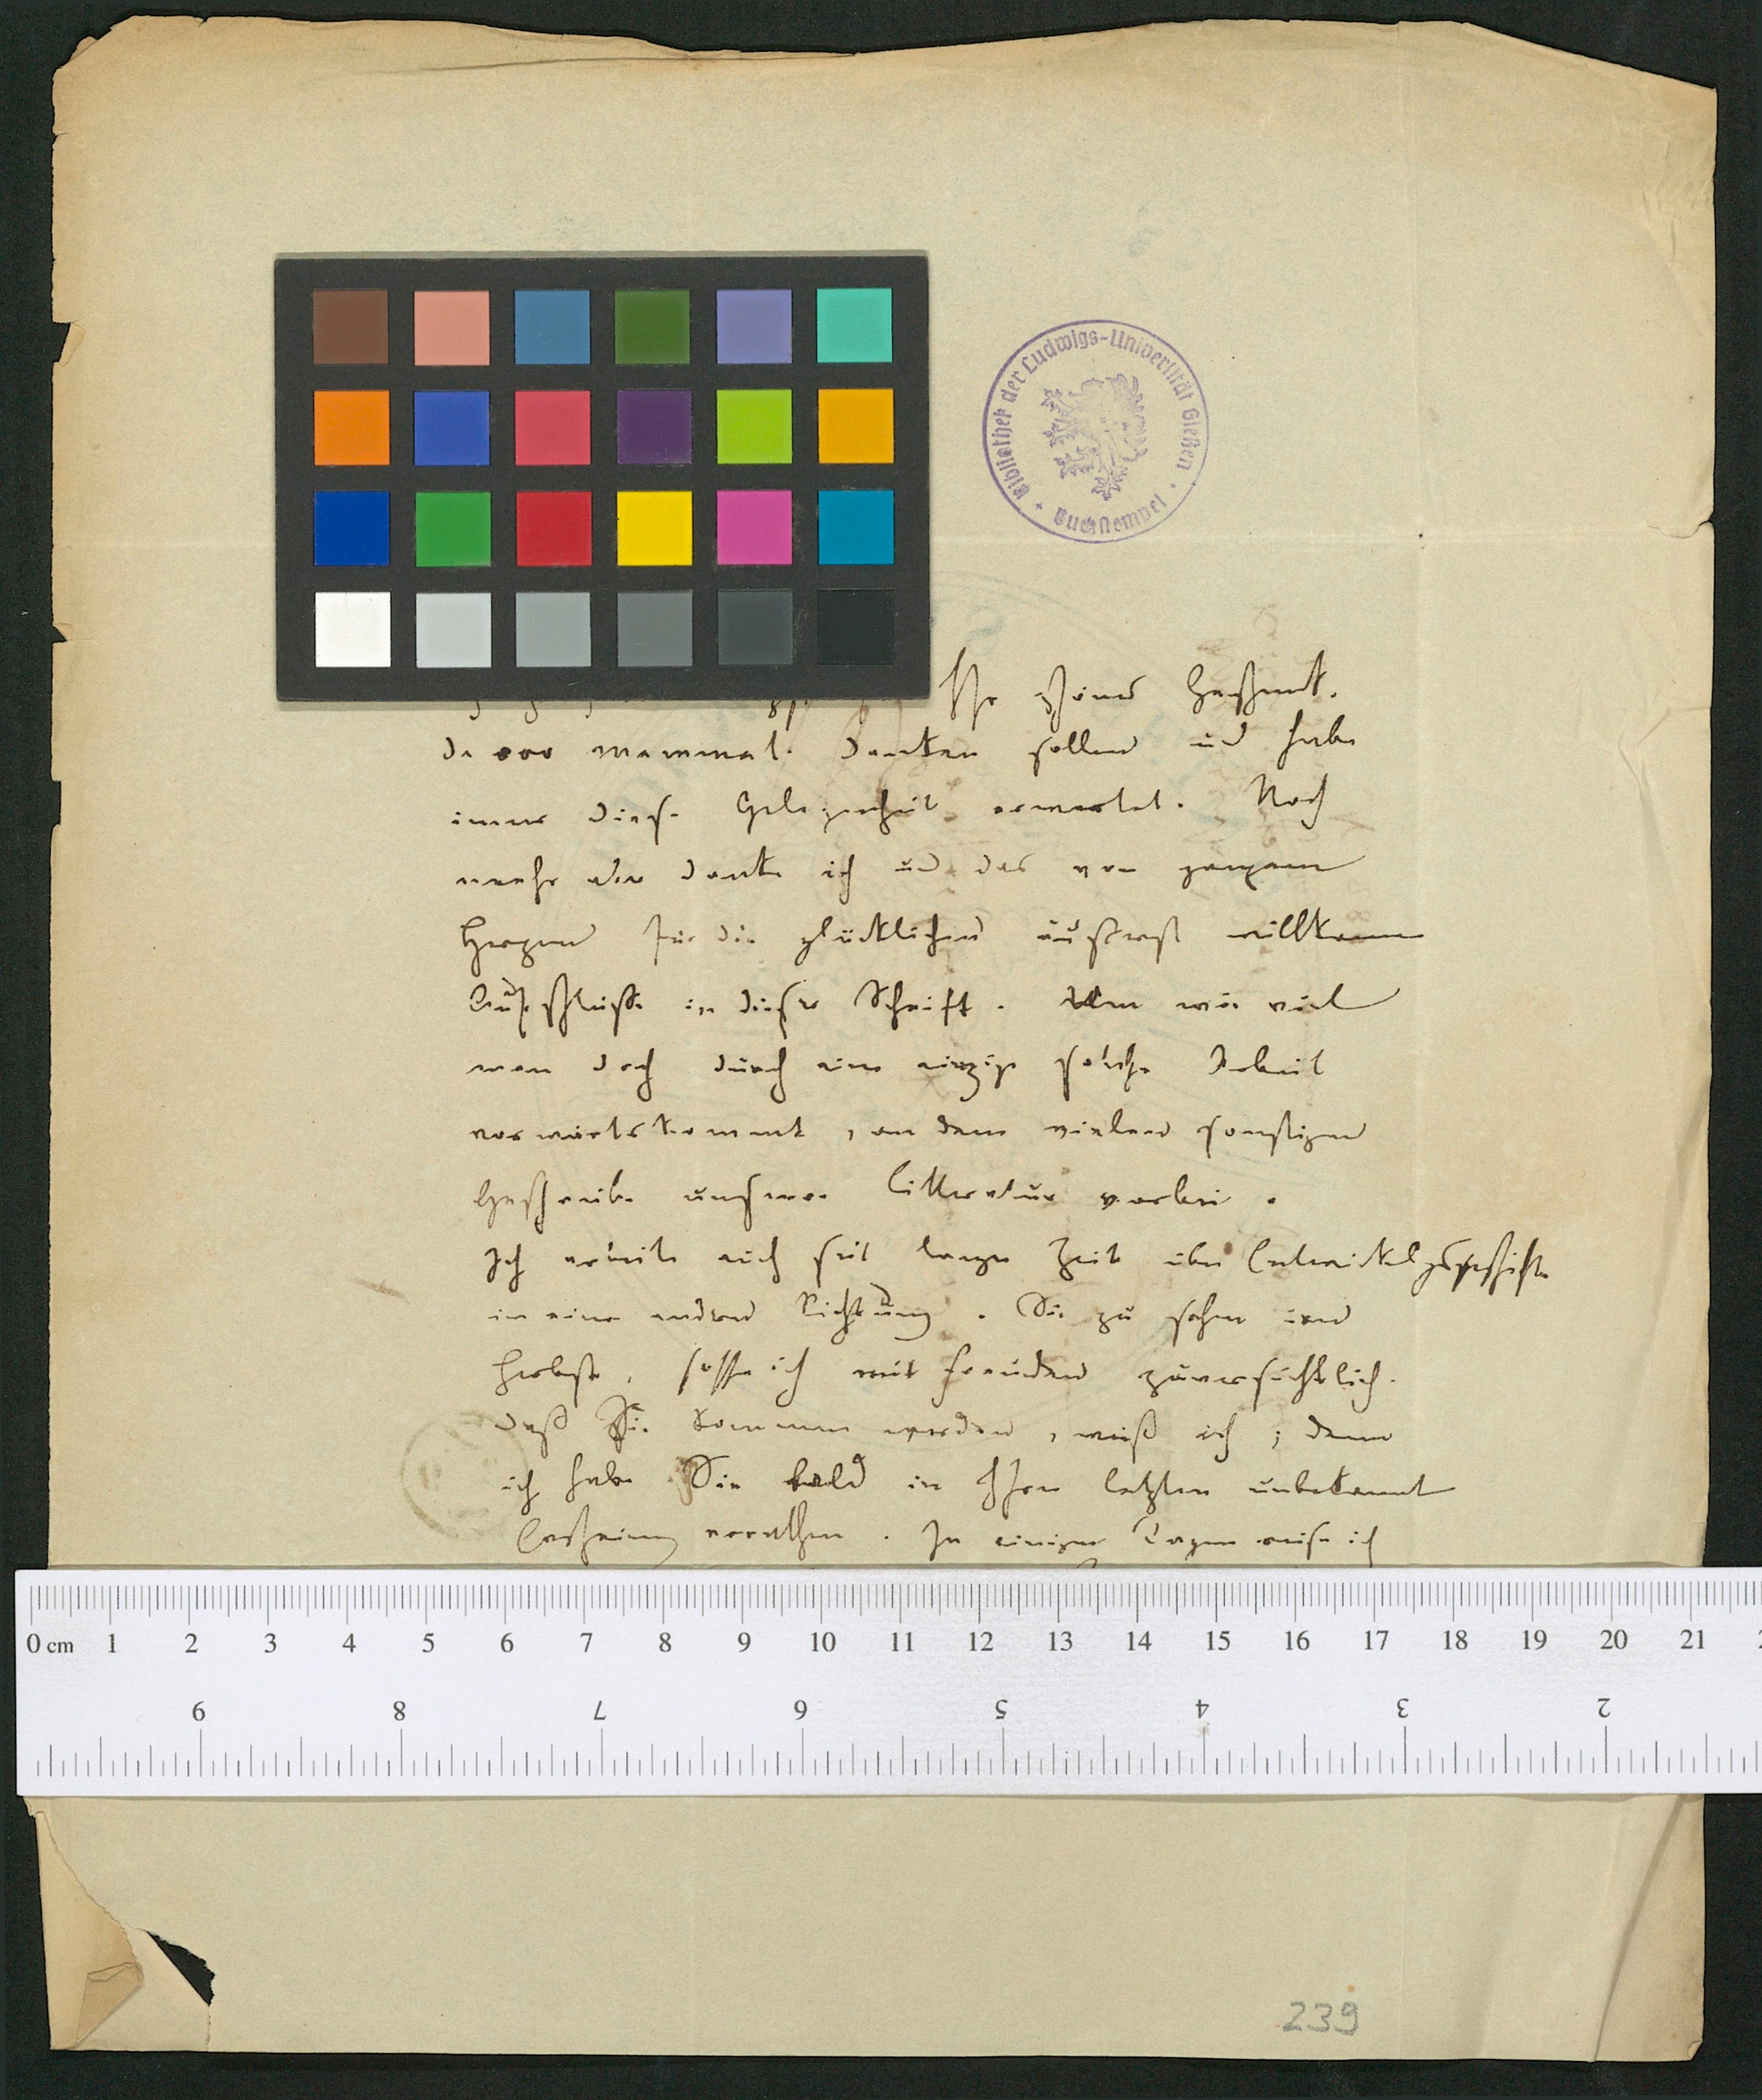 Bibliothek der Ludwigs-Universität Gießen
Buchstempel
Ihr schönes Geschenk
de ovo mammal. danken sollen und habe
immer diese Gelegenheit erwartet. Noch
mehr aber danke ich und das von ganzem
Herzen für die glücklichen äußerst willkomm
Aufschlüsse in dieser Schrift. Um wie viel
man doch durch eine einzige solche Arbeit
vorwärts kommt, an dem vielen sonstigen
Geschreibe unserer Litteratur vorbei.
Ich arbeite auch seit lange Zeit über Entwickelgsgeschichte
in einer andern Richtung. Sie zu sehen im
Herbste, hoffe ich mit Freuden zuversichtlich.
Daß Sie kommen werden, weiß ich; denn
ich habe Sie bald in Ihrer letzten unbekannt
Erscheinung errathen. In einigen Tagen reise ich
0 cm 1 2 3 4 5 6 7 8 9 10 11 12 13 14 15 16 17 18 19 20 21
9 8 7 6 5 4 3 2
239